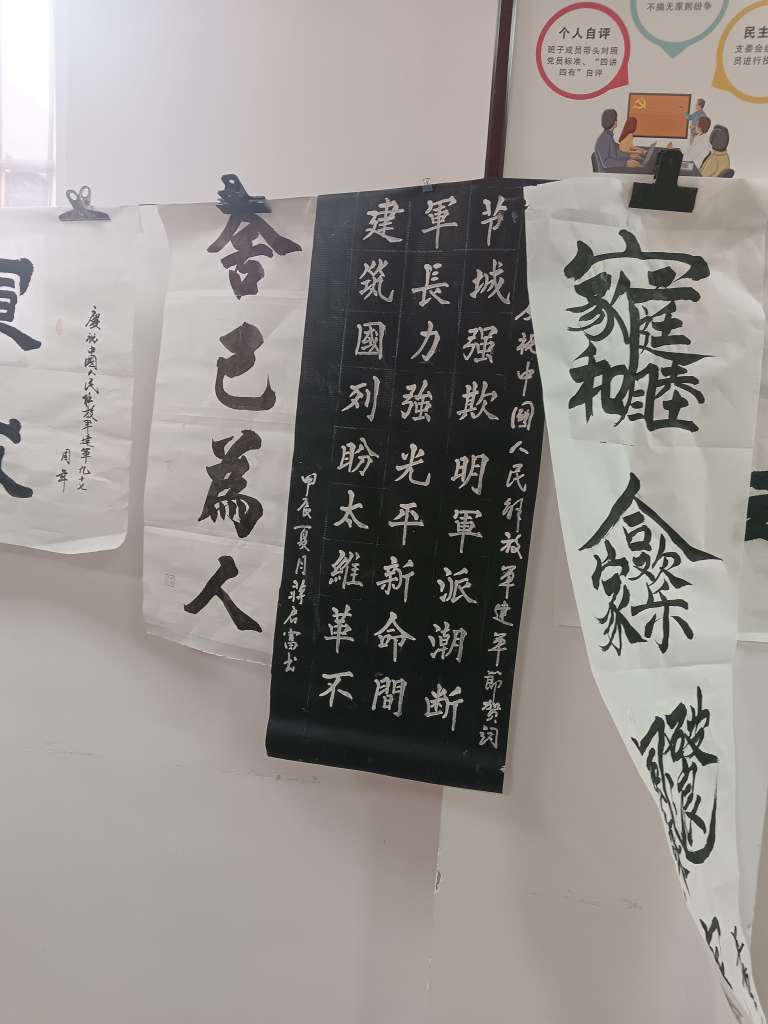 不搞无原则纷争
个人自评
班子成员带头对照
党员标准、“四讲
四有”自评
民主
支委会
员进行投
家庭和睦
合家欢乐
祝中國人民解放軍建軍節贺詞
节城强欺明軍派潮断
軍長力強光平新命間
建筑國列盼太維革不
甲辰夏月蒋启富书
舍己為人
慶祝中國人民解放军建軍九十七
周年